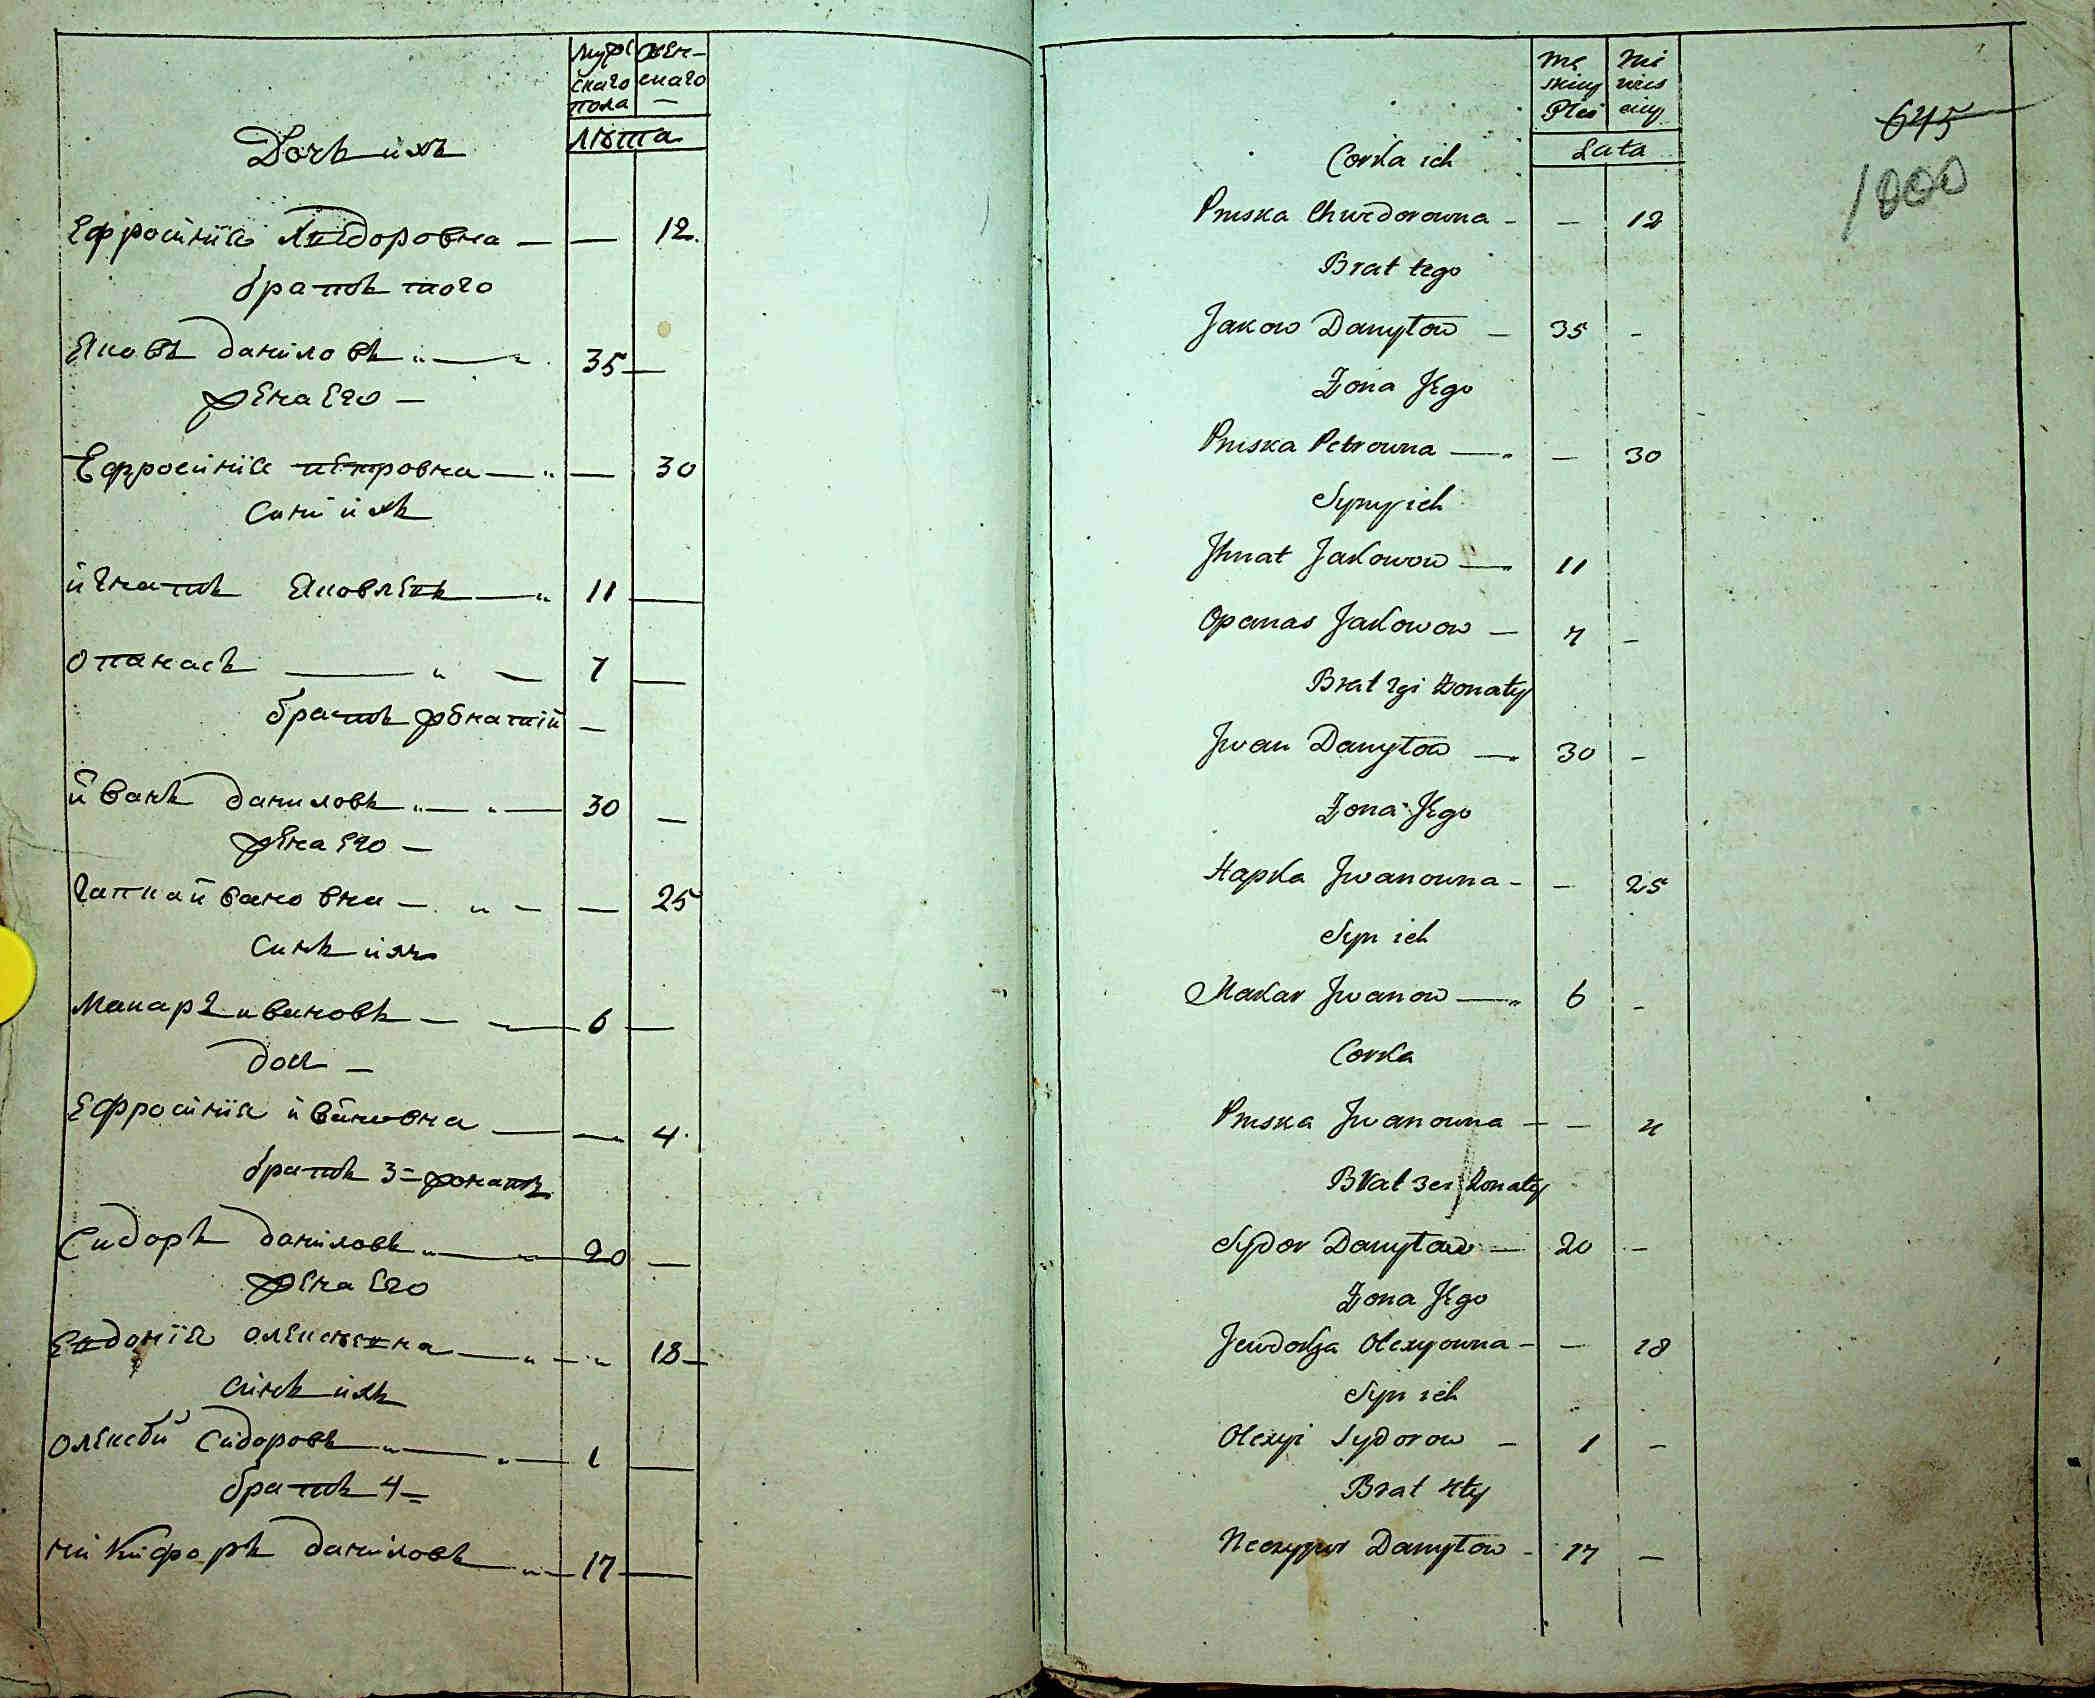 Мужескаго пола
Женскаго
Лѣта
Дочь ихъ
Ефросинія Хведоровна — — 12.
братъ того
Яковъ даниловъ — 35 —
жена Его —
Ефросинія петровна — — 30
Сини ихъ
игнатъ Яковлевъ — 11 —
опанасъ — 7 —
братъ жонатій —
иванъ даниловъ — 30 —
жена Его —
гапка ивановна — — 25
Синъ ихъ
Макаръ ивановъ — 6 —
доч —
Ефросинія ивановна — — 4
братъ 3= жонатъ
Сидоръ даниловъ — 20 —
жена Его
Евдокія олексѣевна — 18 —
Синъ ихъ
олексѣй Сидоровъ — 1 —
братъ 4=
никифоръ даниловъ — 17 —
645
1000
Męskiey Płci
Niewiesciey
Lata
Corka ich
Pruska Chwedorowna — — 12
Brat tego
Jakow Danyłow — 35 —
Zona Jego
Pruska Petrowna — — 30
Syny ich
Jhnat Jakowow — 11
Opanas Jakowow — 7 —
Brat 2gi żonaty
Jwan Danyłow — 30 —
Zona Jego
Hapka Jwanowna — — 25
Syn ich
Makar Jwanow — 6 —
Corka
Pruska Jwanowna — — 4
Brat 3ci żonaty
Sydor Danyłow — 20 —
Zona Jego
Jewdokja Olexyowna — — 18
Syn ich
Olexyi Sydorow — 1 —
Brat 4ty
Danyłow — 17 —